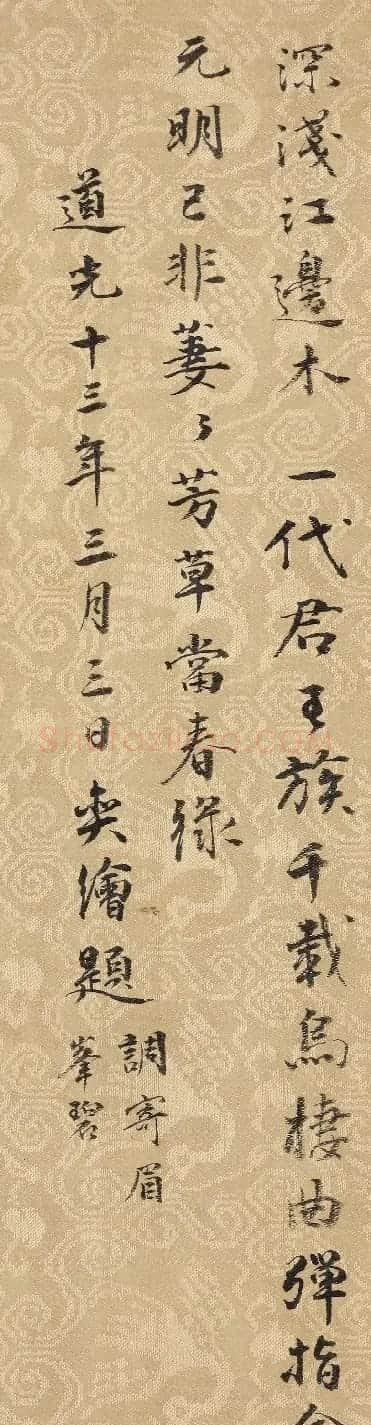 深淺江邊木一代君王族千載烏棲曲彈指
元明已非萋々芳草當春綠
道光十三年三月三日奕繪題
調寄眉
峯碧